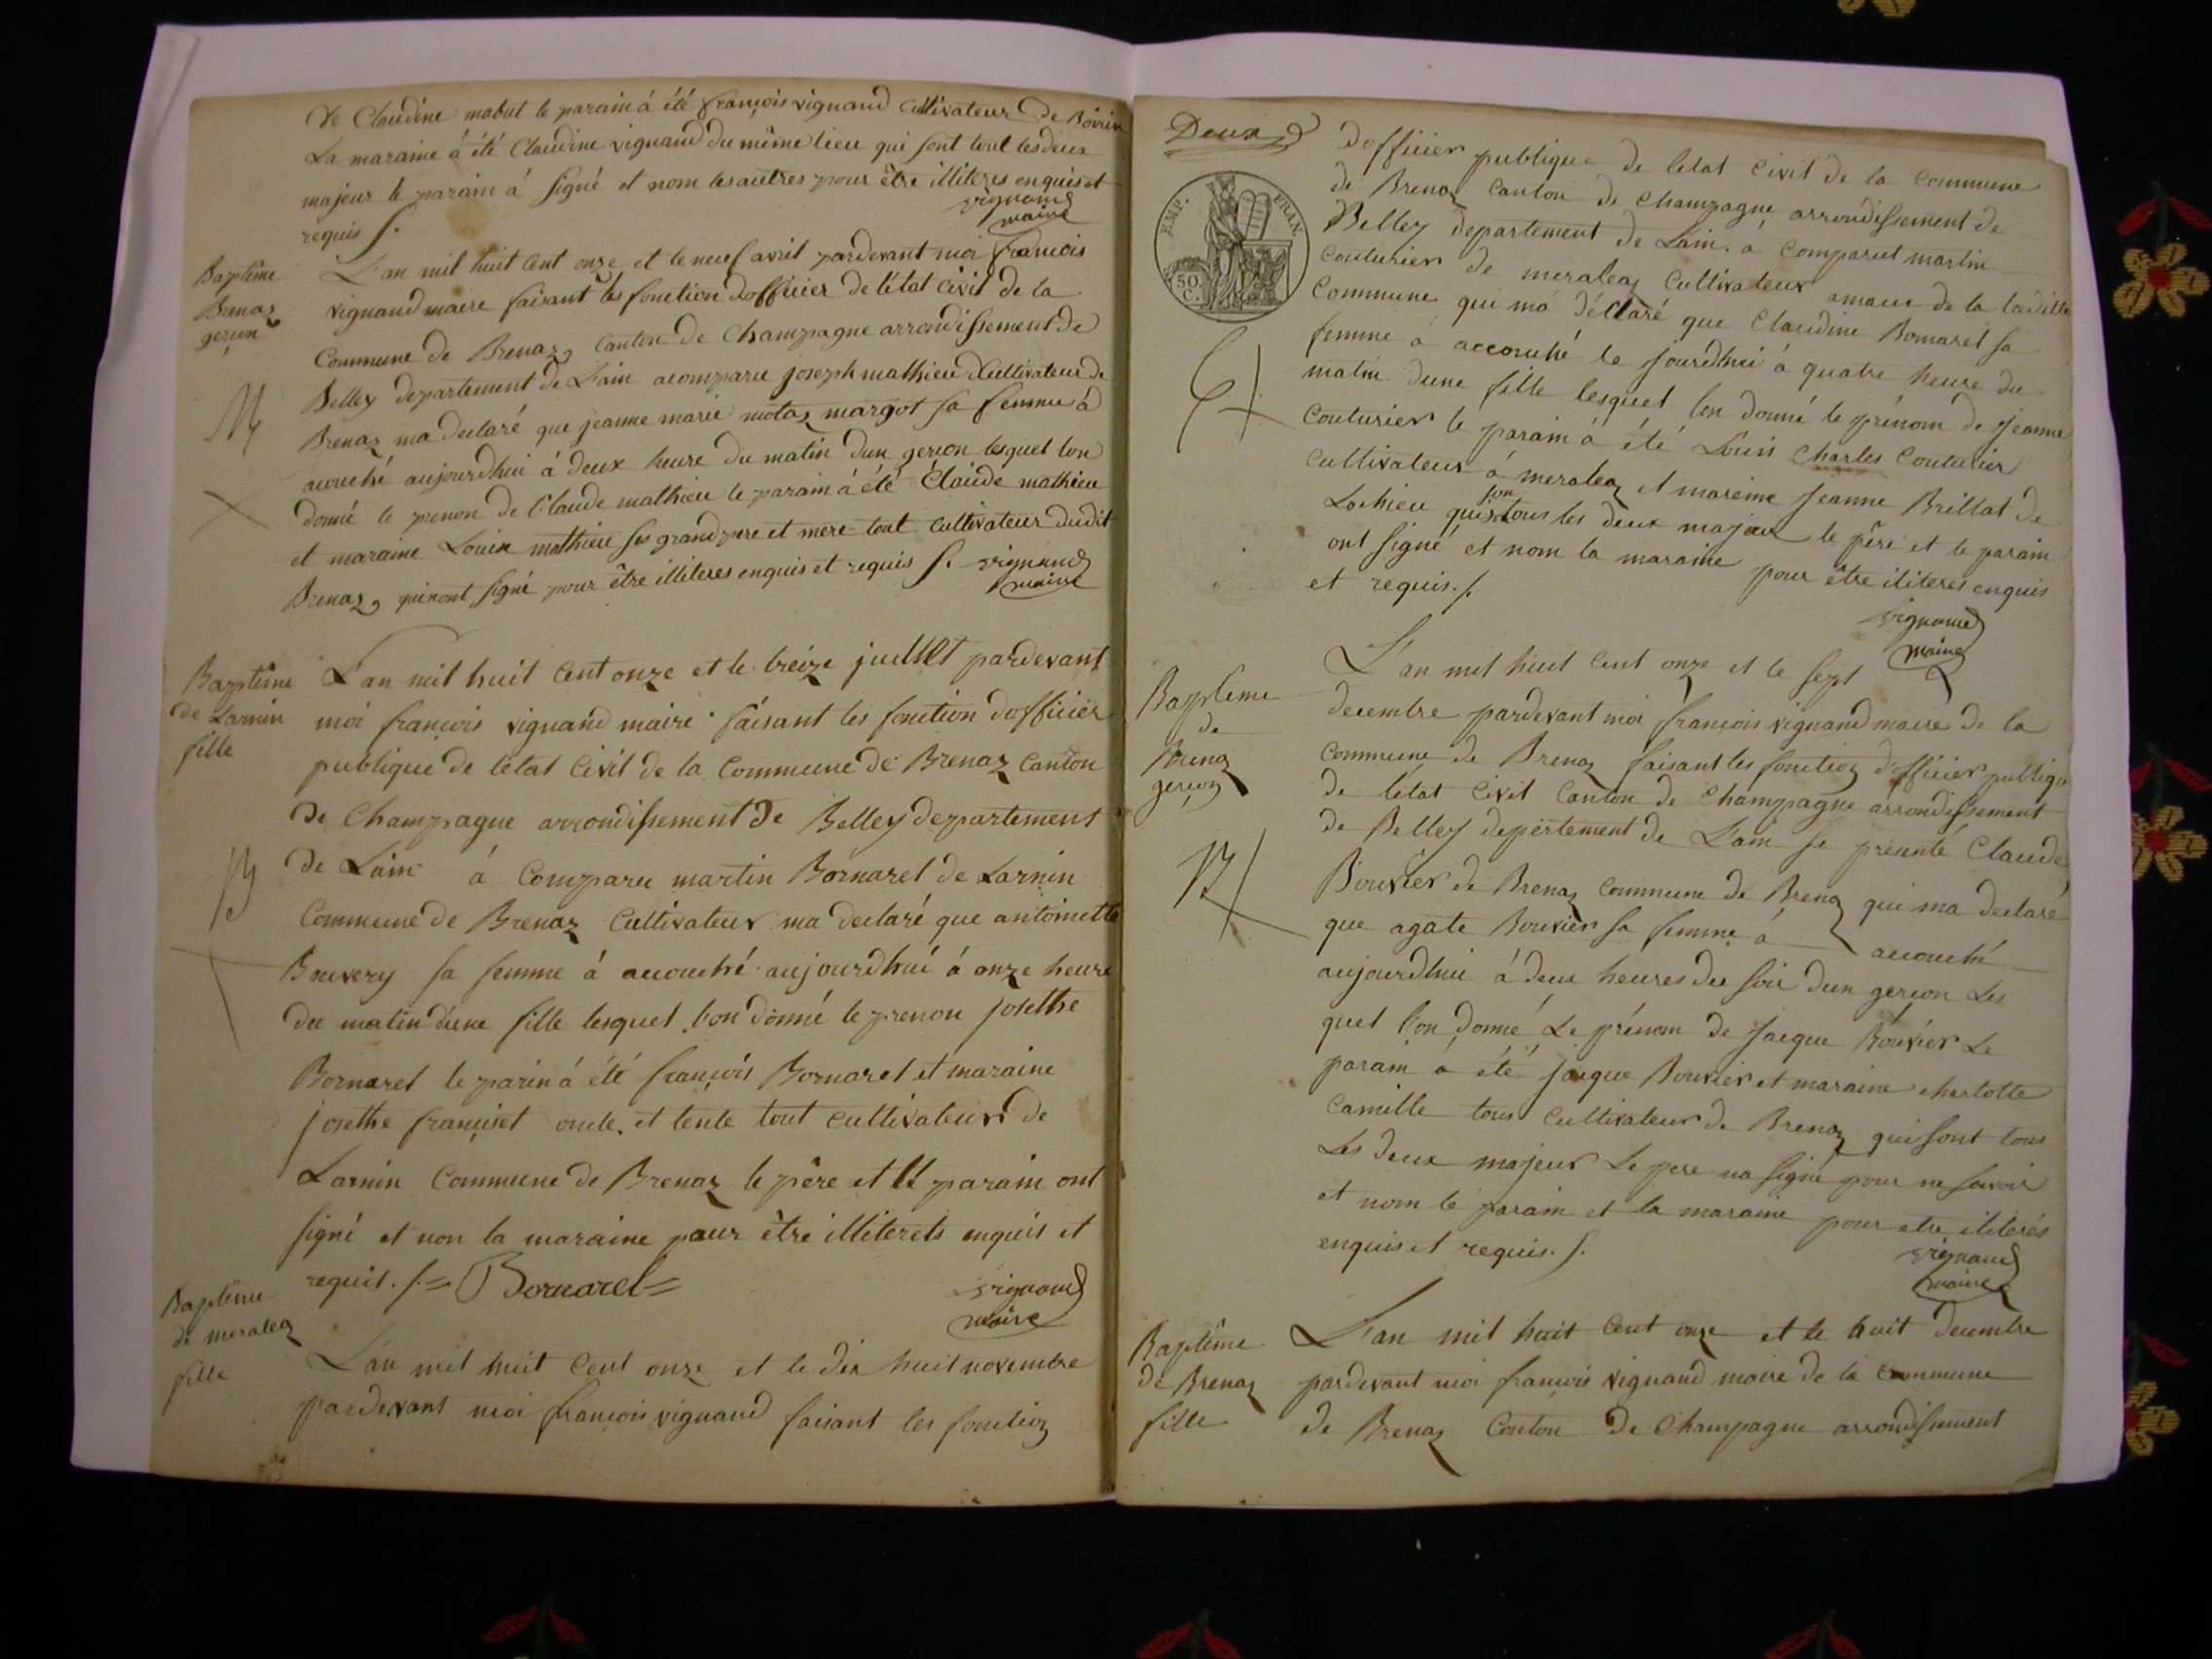 de Claudine mabut le parain á été françois vignand cultivateur de Boirin
La maraine á été Claudine vignand du même lieu qui sont tout les deux
majeur le parain á signé et nom les autres pour être illiteres enquis et
requis /.
vignand
maire
Baptême
Brenaz
gerçon
M
L'an mil huit cent onze et le neuf avril pardevant moi francois
vignand maere faisant les fonction dofficier de létat civil de la
Commune de Brenaz, Canton de Champagne arrondissement de
Belley departement de Lain acomparu joseph mathieu Cultivateur de
Brenaz ma declaré que jeanne marie motaz margot sa femme á
acouché aujourdhui á deux heure du matin dun gerçon lesquel lon
donné le prenon de Claude mathieu le parain á été Claide mathieu
et maraine Louise mathieu ses grand pere et mere tout cultivateur dudit
Brenaz, qui nont signé pour être illiteres enquis et requis /. vignand
maire
Baptême
de Larnin
fille
B
L'an mil huit cent onze et le treize juillet pardevant
moi françois vignand maire faisant les fonction dofficier
publique de létat civil de la Commune de Brenaz Canton
de Champagne arrondissement de Belley departement
de Lain á Comparu martin Bornarel de Larnin
Commune de Brenaz Cultivateur ma declaré que antoinette
Bouvery sa femme á acouché aujourdhui á onze heure
du matin dune fille lesquel lon donné le prenon josethe
Bornarel le parin á été françois Bornarel et maraine
josethe françiset oncle et tente tout cultivateur de
Larnin Commune de Brenaz le père et le parain ont
signé et non la maraine pour être illiterets enquis et
requis. /. = Bornarel =
vignand
maire
Baptême
de meraleaz
fille
L'an mil huit Cent onze et le dix huit novembre
pardevant moi françois vignand faisant les fonction
Deux
EMP. FRAN.
50.
C.
dofficier publique de létat Civil de la Commune
de Brenaz Canton de Champagne arrondissement de
Belley departement de Lain. á Comparut martin
Couturier de meraleaz Cultivateur de la ladille
Commune qui má déclaré que Claudine Bornarel sa
femme á accouché le jourdhui á quatre heure du
matin dune fille lesquel lon donné le prénom de Jeanne
Couturier le parain á été Louis Charles Couturier
Cultivateur á meraleaz et mareine Jeanne Brillat de
Lochieu qui son tous les deux majeur le père et le parain
ont signé et nom la maraine pour être iliteres enquis
et requis. /.
vignand
maire
Baptême
de
Brenaz
gerçon
B
L'an mil huit cent onze et le sept
decembre pardevant moi françois vignand maire de la
Commune de Brenaz faisant les fonction d'officier publiqu
de létat Civil Canton de Champagne arrondissement
de Belley departement de Lain se présenté Claude
Bouvier de Brenaz Commune de Brenaz qui ma declaré
que agate Bouvier sa femme á acouché
aujourdhui á deux heures du soir dun gerçon Les
quel lon donné Le prénom de Jacque Bouvier Le
parain á été Jacque Bouvier et maraine charlotte
Camille tous Cultivateur de Brenaz qui sont tous
Les deux majeur Le pere na signé pour ne savoir
et nom le parain et la maraine pour etre iliterés
enquis et requis. /.
vignand
maire
Baptême
de Brenaz
fille
L'an mil huit Cent onze et le huit decembre
pardevant moi francois vignand maire de la commune
de Brenaz Canton de Champagne arrondissement